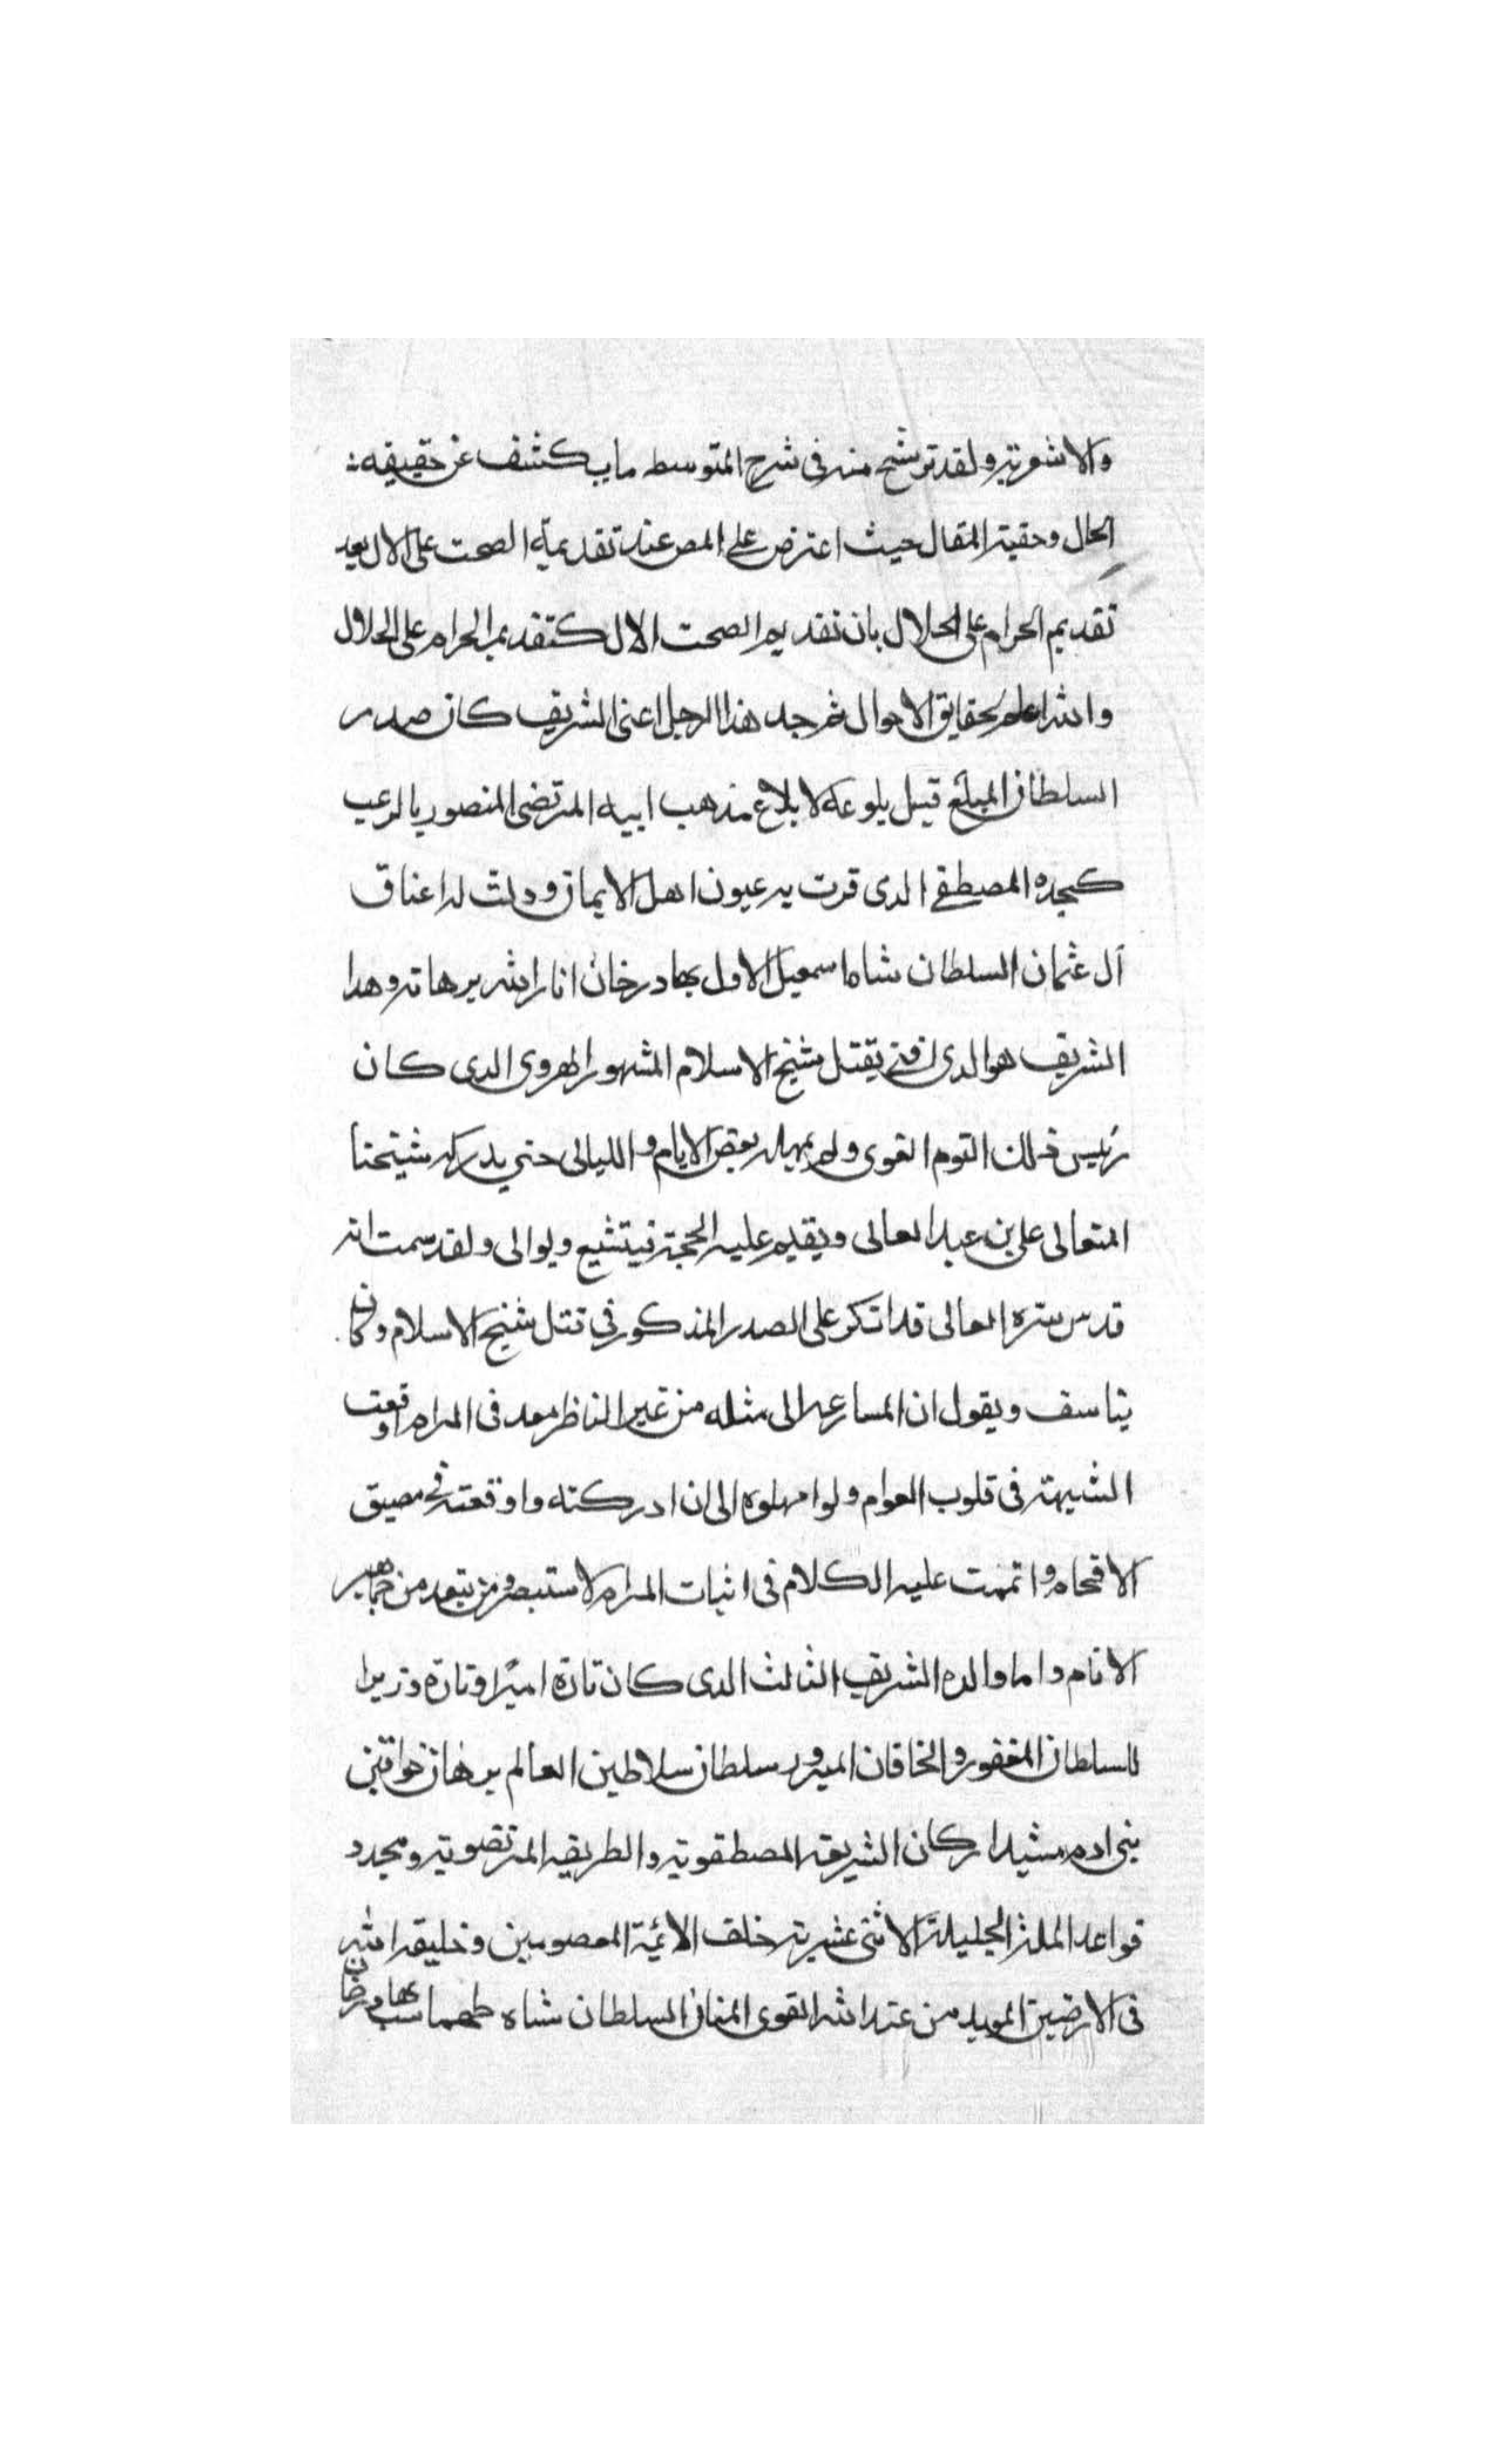 والاشعرية ولقد ترشح منه فى شرح المتوسط ما يكشف عن حقيقه
الحال وحقية المقال حيث اعترض على المص عند تقديمه الصحب على الال بعد
تقديم الحرام على الحلال بان تقديم الصحب الال كتقديم الحرام على الحلال
والله اعلم بحقايق الاحوال ثم جد هذا الرجل اعنى الشريف كان صدر
السلطان المبلغ قبل بلوغه لابلاغ مذهب ابيه المرتضى المنصور بالرعب
كجده المصطفى الدى قرت به عيون اهل الايمان ودلت له اعناق
آل عثمان السلطان شاه اسمعيل الاول بهادر خان انار الله برهانه وهدا
الشريف هو الدى افتى بقتل شيخ الاسلام المشهور الهروى الدى كان
رئيس ذلك القوم الغوى ولم يمهله بعض الايام والليالى حتى يدركه شيخنا
المتعالى على بن عبد العالى ويقيم عليه الحجة فيتشيع ويوالى ولقد سمت انه
قدس سره العالى قد انكر على الصدر المذكور فى قتل شيخ الاسلام وكان
يتاسف ويقول ان المسارعه الى مثله من غير الناظر معه فى المرام اوقعت
الشبهة فى قلوب العوام ولو امهلوه الى ان ادركته واوقعته فى مضيق
الافحام واتممت عليه الكلام فى اثبات المرام لاستبصر ومن تبعه من جماهير
الانام واما والده الشريف الثالث الدى كان تارة اميرًا وتارة وزيرا
للسلطان المغفور والخاقان المبرور سلطان سلاطين العالم برهان خواقين
بنى ادم مشيد اركان الشريعه المصطفوية والطريقه المرتضوية ومجدد
قواعد الملة الجليلة الاثنى عشرية خلف الائمة المعصومين وخليفة الله
فى الارضين المويد من عند الله القوى المنان السلطان شاه طهماسب بهادر خان